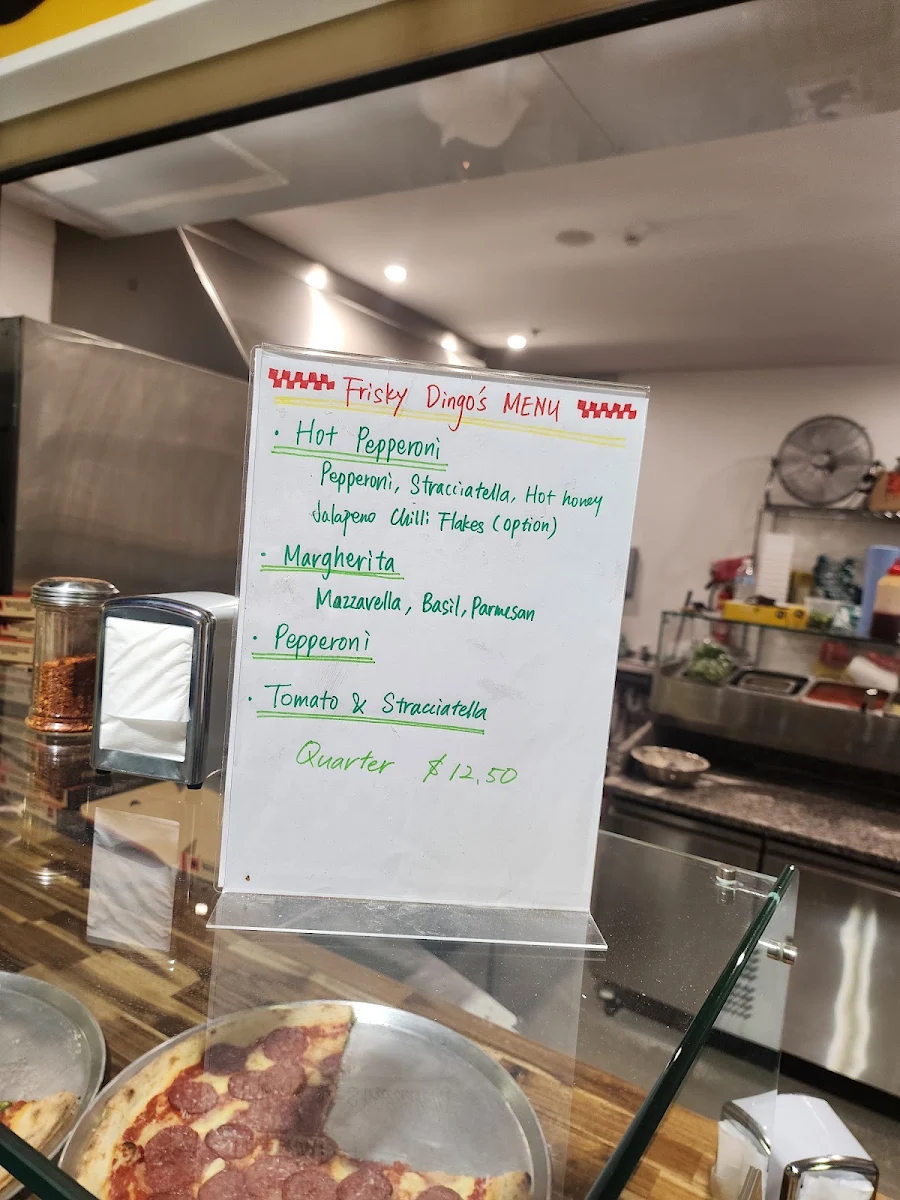 Frisky Dingo's MENU
· Hot Pepperoni
Pepperoni, Stracciatella, Hot honey
Jalapeno Chilli Flakes (option)
· Margherita
Mazzarella, Basil, Parmesan
· Pepperoni
· Tomato & Stracciatella
Quarter $12.50